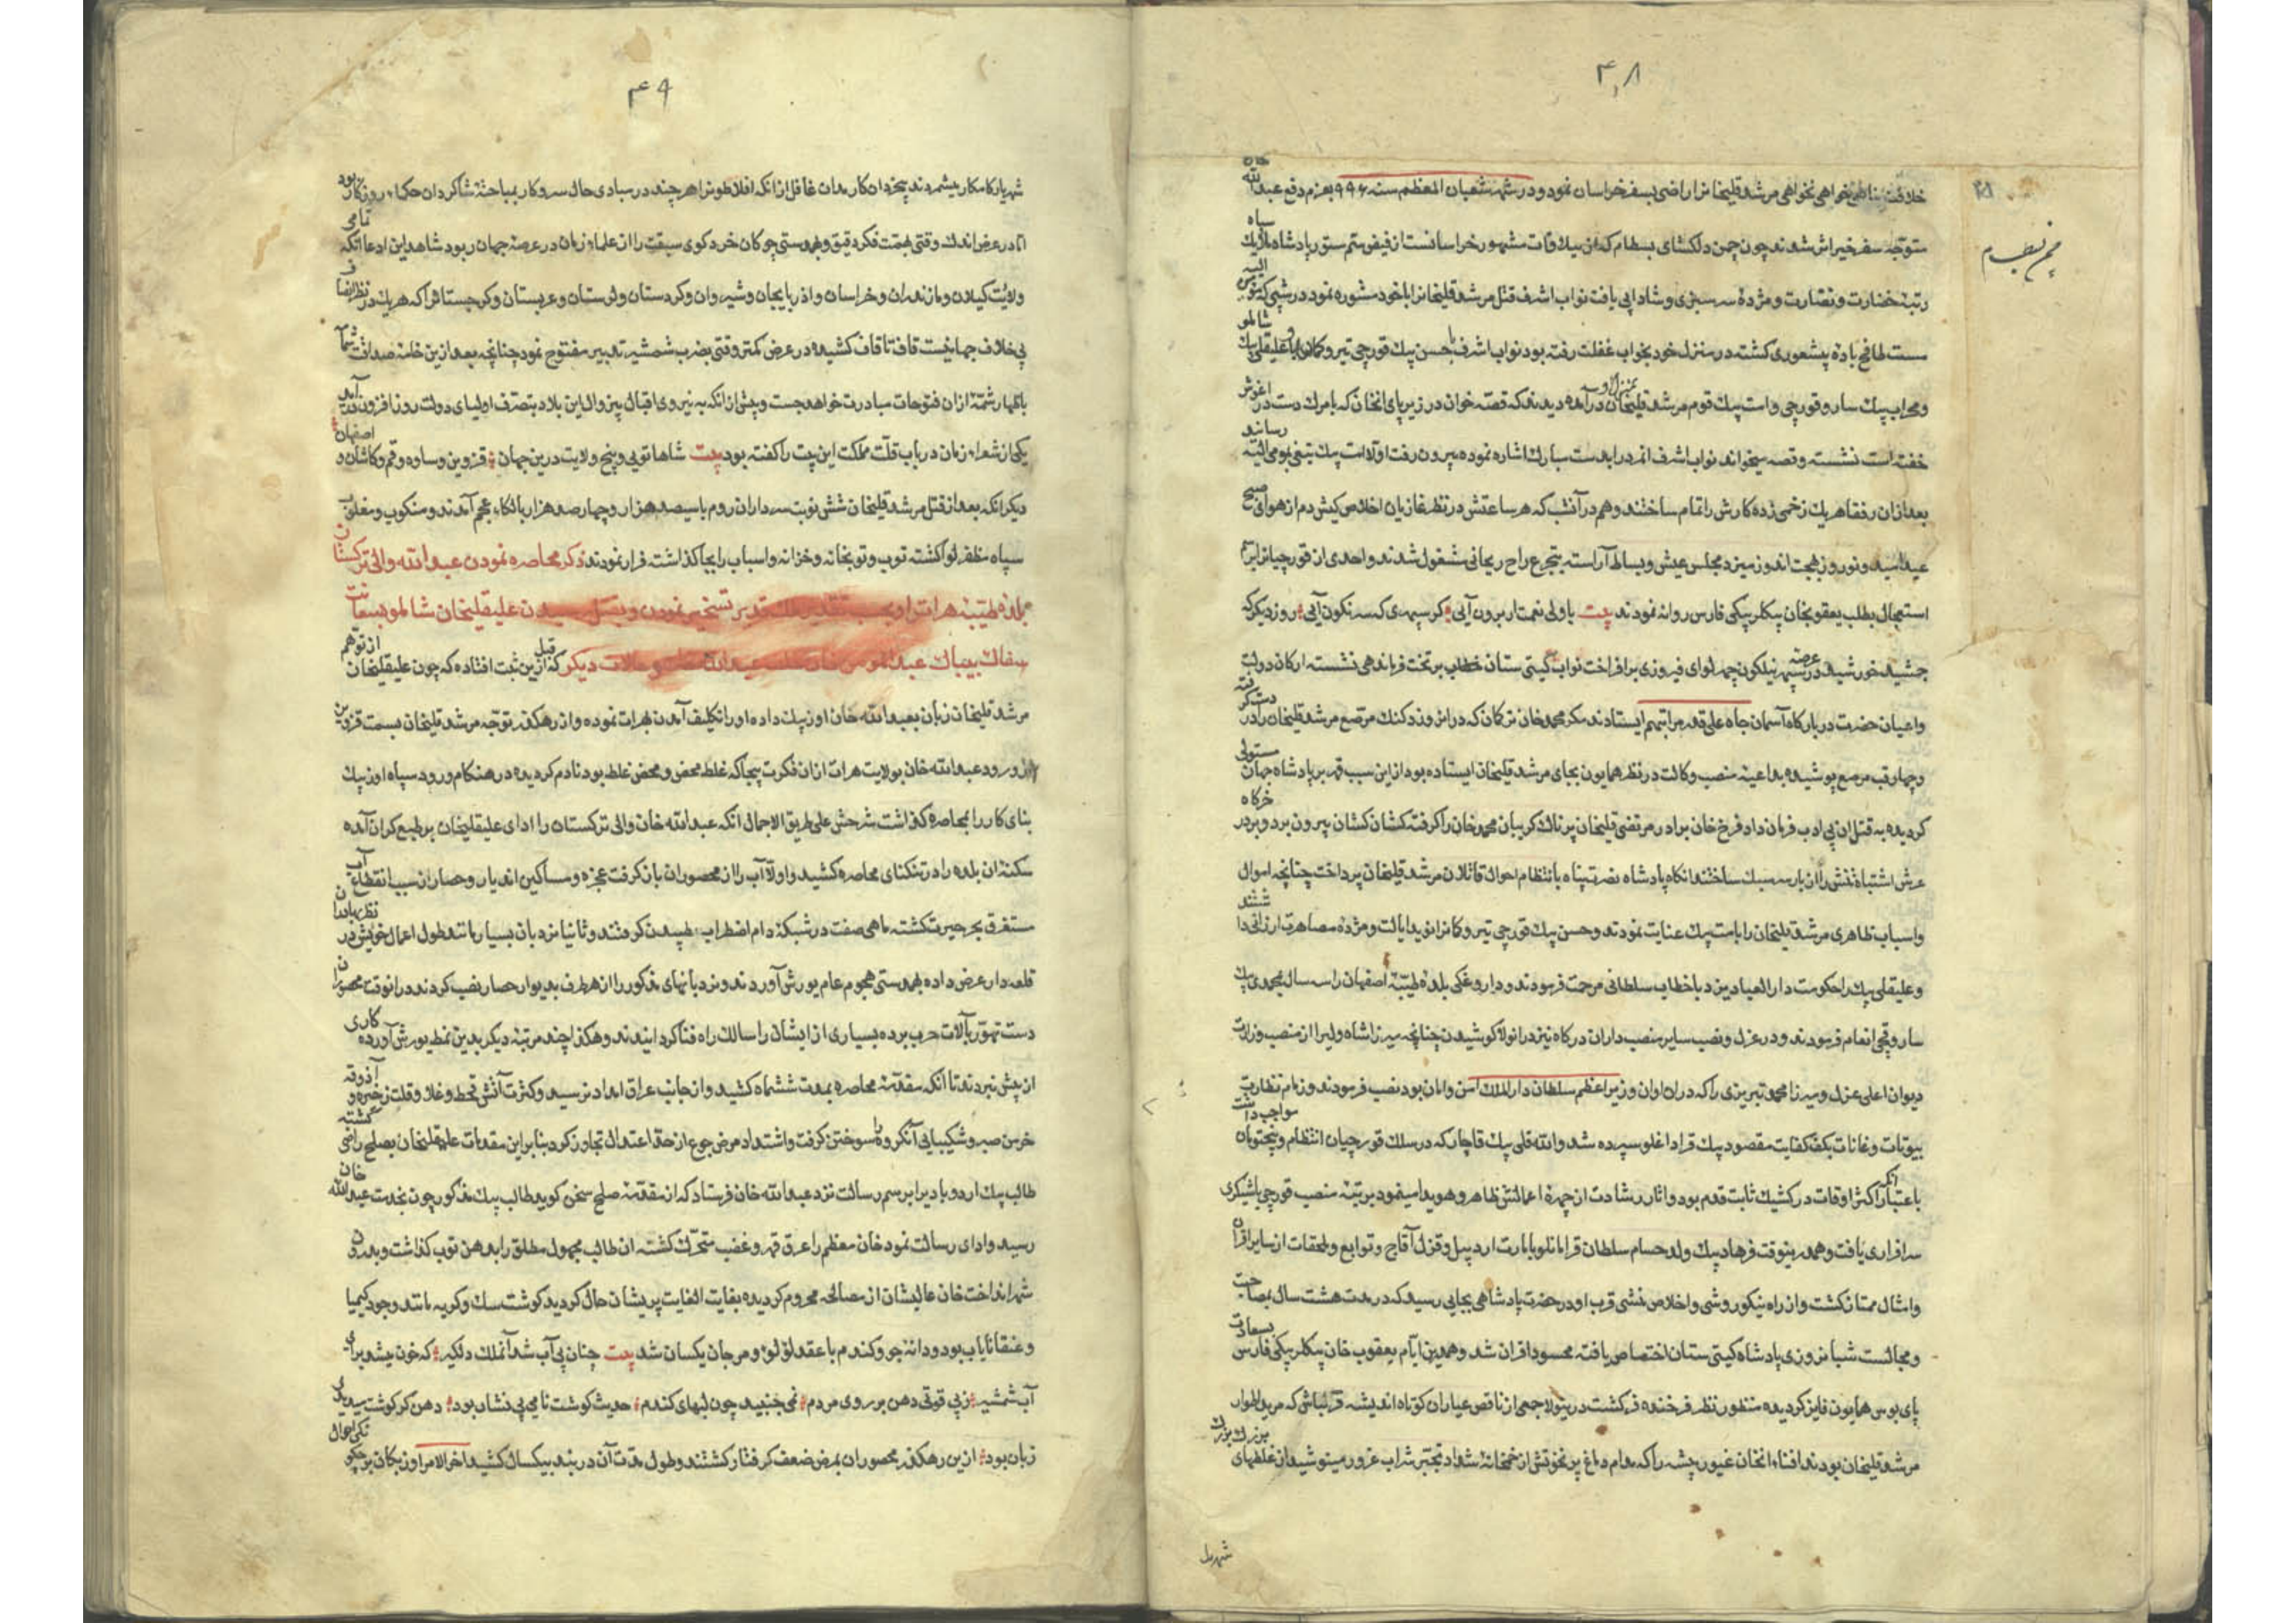 ۴۸
خلافت مناط خواهی نخواهی مرشد قلیخانرا راضی بسفر خراسان نمود و در شهر شعبان المعظم سنه ۹۹۶ بعزم دفع عبدالله خان
متوجه سفر خیر اثر شدند چون چمن دلکشای بسطام که از ییلاقات مشهور خراسانست از فیض سم ستور پادشاه ملایک سپاه
رتبه خضارت و نضارت و مژده سرسبزی و شادابی یافت نواب اشرف قتل مرشد قلیخانرا با خود مشوره نمود در شبی که
مست طافح باده بیشعوری کشته در منزل خود بخواب غفلت رفته بود نواب اشرف با حسن بیک قورچی تیر و کمان و علیقلی بیک شاملو
و محراب بیک ساروقورچی و امت بیک قوم مرشد قلیخان بمنزل او درآمده دیدند که قصه خوان در زیر پای انخان که با مرک دست در اغوش
خفته است نشسته و قصه میخواند نواب اشرف انمردرا بدست مبارک اشاره نموده بیرون رفت اولا امت بیک تیغی بوی رسانید
بعد ازان رفقا هریک زخمی زده کارش را تمام ساختند و هم در آنشب که هر ساعتش در نظر غازیان اخلاص کیش دم از هوای صبح
عید امید و نوروز بهجت اندوز میزد مجلس عیش و بساط آراسته بتجرع راح ریحانی مشغول شدند و احدی از قورچیانرا
استعجال بطلب یعقوبخان بیکلربیکی فارس روانه نمودند بیت با ولی نعمت ار برون آیی کر سپهری که سرنکون آیی روز دیکر که
جمشید خورشید در عرصه سپهر نیلکون چهر لوای فیروزی برافراخت نواب کیتی ستان خطاب بر تخت فرماندهی نشسته ارکان دولت
و اعیان حضرت در بارکاه آسمان جاه علی قدر مراتبهم ایستادند مکر محمد خان ترکان که در انروز دکنک مرصع مرشد قلیخان را در دست کرفته
و چهارقب مرصع پوشیده بداعیه منصب وکالت در نظر همایون بجای مرشد قلیخان ایستاده بود از این سبب قهر بر پادشاه جهان مستولی
کردیده به قتل ان بی ادب فرمان داد فرخ خان برادر مرتضی قلیخان پرناک کریبان محمد خان را کرفته کشان کشان بیرون برد و بر در خرکاه
عرش اشتباه تنش را از بار سر سبک ساختند انکاه پادشاه نصرت پناه بانتظام احوال قاتلان مرشد قلیخان پرداخت چنانچه اموال
و اسباب ظاهری مرشد قلیخان را بامت بیک عنایت نمودند و حسن بیک قورچی تیر و کمانرا نوید ایالت و مژده مصاهرت ارزانی داشتند
و علیقلی بیک را حکومت دار العباد یزد با خطاب سلطانی مرحمت فرمودند و داروغکی بلده طیبه اصفهان را سه سال بمحمدی بیک
ساروقچی انعام فرمودند و در عزل و نصب سایر منصب داران درکاه نیز در انولا کوشیدن چنانچه میرزا شاه ولیرا از منصب وزارت
دیوان اعلی عزل و میرزا محمد تبریزی را که دران اوان وزیر اعظم سلطان دار الملک امن و امان بود نصب فرمودند و زمام نظارت
بیوتات و غانات بکف کفایت مقصود بیک قراداغلو سپرده شد و الله قلی بیک قاجار که در سلک قورچیان انتظام و پنجتومان مواجب داشت
باعتبار آنکه اکثر اوقات در کشیک ثابت قدم بود و اثار رشادت از چهره اعمالش ظاهر و هویدا مینمود برتبه منصب قورچی باشیکری
سرافرازی یافت و همدرینوقت فرهاد بیک ولد حسام سلطان قرامانلو بامارت اردبیل و قزل آقاج و توابع و ملحقات از سایر اقران
و امثال ممتاز کشت و از راه نیکو روشی و اخلاص منشی قرب او در حضرت پادشاهی بجایی رسید که در مدت هشت سال بمصاحبت
و مجالست شبانروزی پادشاه کیتی ستان اختصاص یافته محسود اقران شد و همدرین ایام یعقوب خان بیکلربیکی فارس بسعادت
پای بوس همایون فایز کردیده منظور نظر فرخنده فر کشت درینولا جمعی از ناقص عیاران کوتاه اندیشه قزلباش که مرید اطوار
مرشد قلیخان بودند افناء انخان غیور پیشه را که مدام دماغ پر نخوتش از خمخانه شداد تجبر شراب غرور مینوشید از غلطهای بزرک
شهریار
۴۹
شهریار کامکار میشمردند بیخردان کار مدان غافل از انکه افلاطونرا هر چند در مبادی حال سر و کار بمباحثه شاکردان حکماء روزکار بود
اما در عرض اندک وقتی بهمت فکر دقیق و بهمدستی چوکان خرد کوی سبقت را از علماء زمان در عرصه جهان ربود شاهد این ادعا انکه تمامی
ولایت کیلان و مازندران و خراسان و اذربایجان و شیروان و کردستان و لرستان و عربستان و کرجستانرا که هریک در نظر انصاف
بی خلاف جهانیست قاف تا قاف کشیده در عرض کمتر وقتی بضرب شمشیر تدبیر مفتوح نمود چنانچه بعد ازین خامه صداقت
باظهار شمه ازان فتوحات مبادرت خواهد جست و پیش از انکه به نیروی اقبال بیزوال این بلاد بتصرف اولیای دولت روزافزون درآید
یکی از شعراء زمان در باب قلت مملکت این بیت را کفته بود بیت شاها تویی و پنج ولایت درین جهان قزوین و ساوه و قم و کاشان و اصفهان
دیکر انکه بعد از قتل مرشد قلیخان شش نوبت سرداران روم با سیصد هزار و چهارصد هزار بالکاء عجم آمدند و منکوب و مغلوب
سپاه مظفر لوا کشته توپ و توپخانه و خزانه و اسباب را بجا کذاشته فرار نمودند ذکر محاصره نمودن عبدالله والی ترکستان
بلده طیبه هرات را و بحسب تقدیر ملک قدیر تسخیر نمودن و بقتل رسیدن علیقلیخان شاملو بسعایت
سفاک بیباک عبدالمومن خان خلف عبدالله خان و حالات دیکر قبل ازین ثبت افتاده که چون علیقلیخان از توهم
مرشد قلیخان زبان بعبدالله خان اوزبک داده او را تکلیف آمدن بهرات نموده و از رهکذر توجه مرشد قلیخان بسمت قزوین
و ورود عبدالله خان بولایت هرات ازان فکرت بیجا که غلط محض و محض غلط بود نادم کردیده در هنکام ورود سپاه اوزبک
بنای کار را بمحاصره کذاشت شرحش علی طریق الاجمال انکه عبدالله خان والی ترکستان را ادای علیقلیخان بر طبع کران آمده
سکنه ان بلده را در تنکنای محاصره کشید و اولا آب را از محصوران باز کرفت عجزه و مساکین اندیار و حصار از سبب انقطاع آب
مستغرق بحر حیرت کشته ماهی صفت در شبکه دام اضطراب طپیدن کرفتند و ثانیا نردبان بسیار مانند طول اعمال خویش در نظر بهادران
قلعه دار عرض داده بهمدستی هجوم عام یورش آوردند و نردبانهای مذکور را از هر طرف بدیوار حصار نصب کردند در انوقت محصوران
دست تهور بآلات حرب برده بسیاری از ایشان را سالک راه فنا کردانیدند و هکذا چند مرتبه دیکر بدین نمط یورش آورده کاری
از پیش نبردند تا آنکه مقدمه محاصره بمدت ششماه کشید و از جانب عراق امداد نرسید و کثرت آتش قحط و غلا و قلت ذخیره و آذوقه
خرمن صبر و شکیبایی آنکروه را سوختن کرفت و اشتداد مرض جوع از حد اعتدال تجاوز کرد بنابر این مقدمات علیقلیخان بصلح راضی کشته
طالب بیک اردوبادیرا برسم رسالت نزد عبدالله خان فرستاد که از مقدمه صلح سخن کوید طالب بیک مذکور چون بخدمت عبدالله خان
رسید و ادای رسالت نمود خان معظم را عرق قهر و غضب متحرک کشته ان طالب مجهول مطلق را بدهن توپ کذاشت و بدرون
شهر انداخت خان عالیشان از مصالحه محروم کردیده بغایت الغایت پریشان حال کردید کوشت سک و کربه مانند وجود کیمیا
و عنقا نایاب بود و دانه جو و کندم با عقد لؤلؤ و مرجان یکسان شد بیت چنان بی آب شد آنملک دلکیر که خون میشد برای
آب شمشیر ز بی قوتی دهن بر روی مردم نمی جنبید چون لبهای کندم حدیث کوشت نامی بی نشان بود دهن کر کوشت میدیدی
زبان بود ازین رهکذر محصوران بمرض ضعف کرفتار کشتند و طول مدت آن دربند بیکسال کشید اخر الامر اوزبکان بر چکونکی احوال